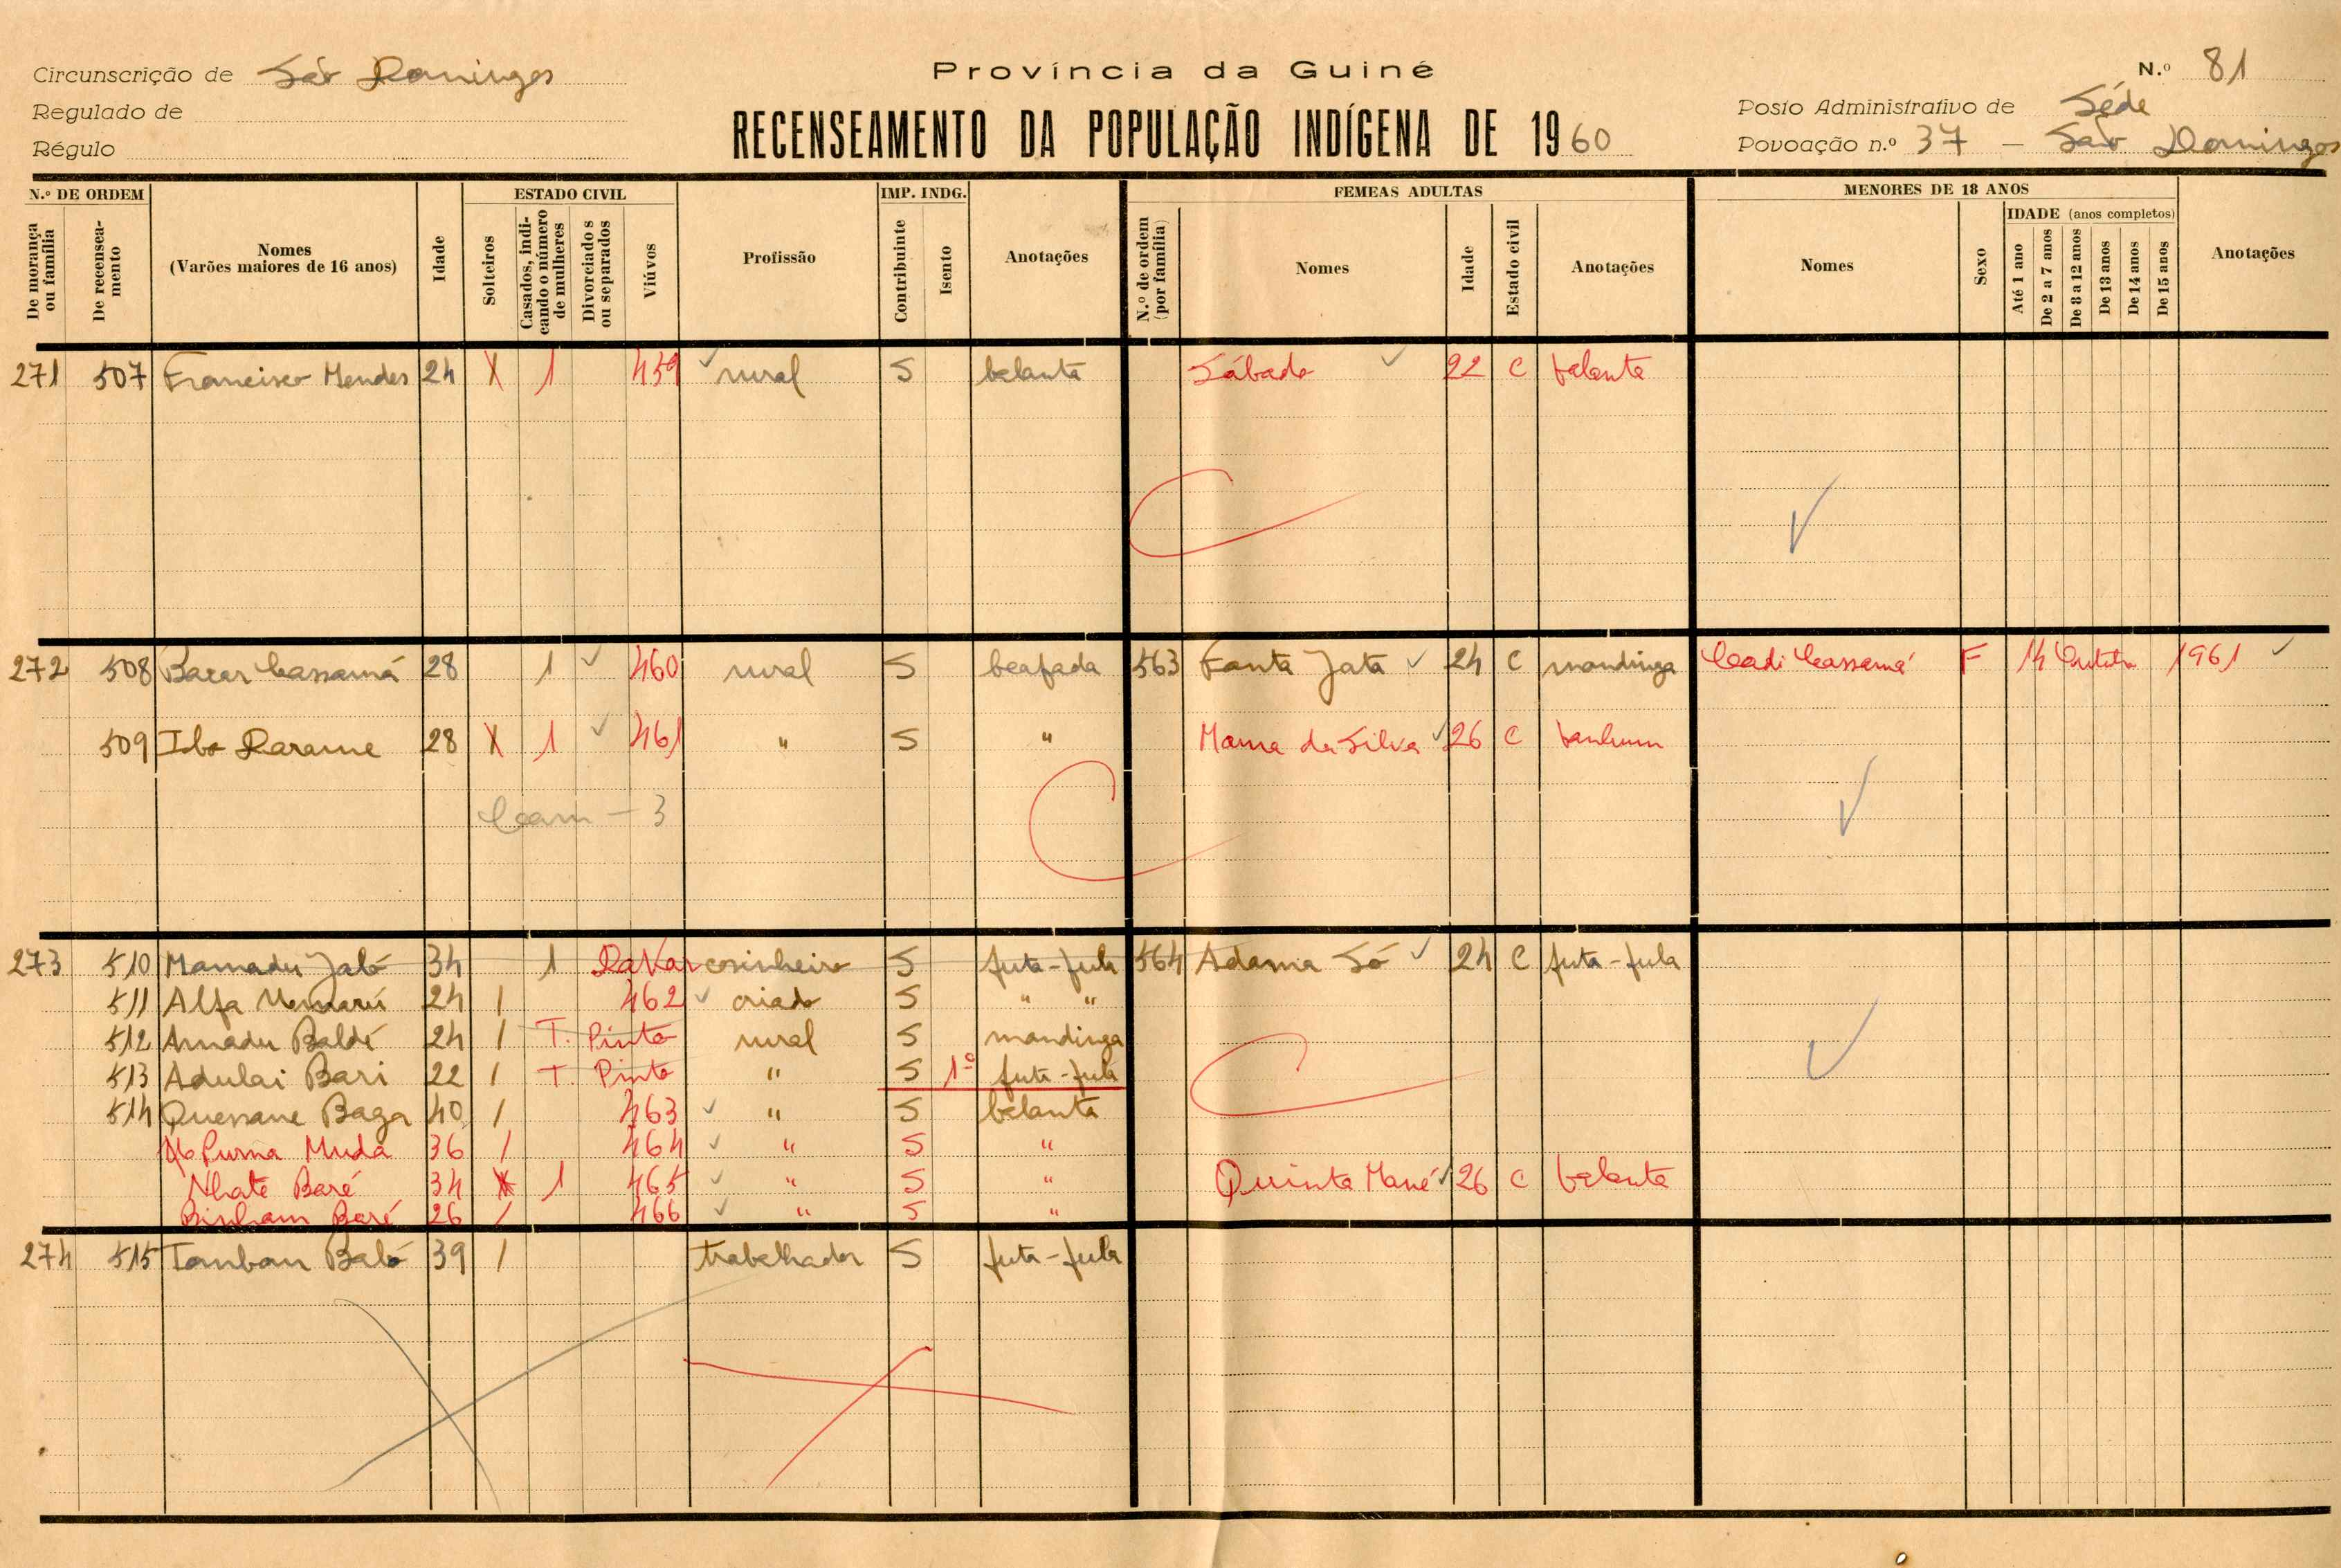 Circunscrição de São Domingos
Província da Guiné
N.º 81
Regulado de
RECENSEAMENTO DA POPULAÇÃO INDÍGENA DE 1960
Posto Administrativo de Séde
Régulo
Povoação n.º 37 — São Domingos
N.º DE ORDEM
ESTADO CIVIL
IMP. INDG.
FEMEAS ADULTAS
MENORES DE 18 ANOS
De morança ou família
De recenseamento
Nomes
(Varões maiores de 16 anos)
Idade
Solteiros
Casados, indicando o número de mulheres
Divorciados ou separados
Viúvos
Profissão
Contribuinte
Isento
Anotações
N.º de ordem (por família)
Nomes
Idade
Estado civil
Anotações
Nomes
Sexo
IDADE (anos completos)
Até 1 ano
De 2 a 7 anos
De 8 a 12 anos
De 13 anos
De 14 anos
De 15 anos
Anotações
271 507 Francisco Mendes 24 X 1 459 rural S balanta Sábado 22 C balanta
272 508 Bacar Cassamá 28 1 460 rural S beafada 563 Fanta Jata 24 C mandinga Cadi Cassamá F 14 1961
509 Ibo Darame 28 X 1 461 " S " Mama da Silva 26 C banhum
Cam - 3
273 510 Mamadu Jaló 34 1 Dakar cosinheiro S futa-fula 564 Adama Só 24 C futa-fula
511 Alfa 24 1 462 criado S " "
512 Amadu Baldé 24 1 T. Pinto rural S mandinga
513 Adulai Bari 22 1 T. Pinto " S 1º futa-fula
514 Quessane Baga 40 1 463 " S balanta
Purna Muda 36 1 464 " S "
Nhate Baré 34 X 1 465 " S " Quinta Mané 26 C balanta
Binham Baré 26 1 466 " S "
274 515 Tamban Baló 39 1 trabalhador S futa-fula